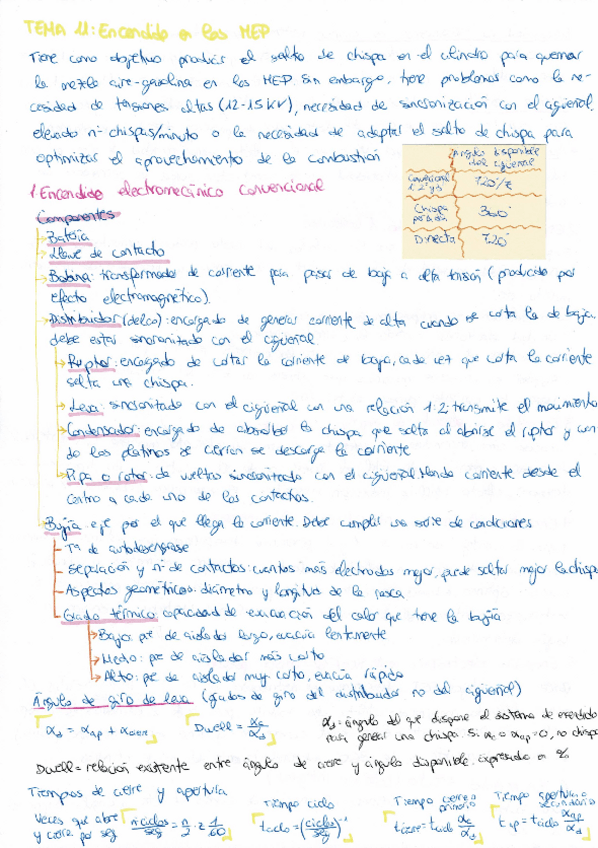 TEMA 11: Encendido en los MEP
Tiene como objetivo producir el salto de chispa en el cilindro para quemar
la mezcla aire-gasolina en los MEP. Sin embargo, tiene problemas como la ne-
cesidad de tensiones altas (12-15 kV), necesidad de sincronización con el cigüeñal,
elevado nº chispas/minuto o la necesidad de adaptar el salto de chispa para
optimizar el aprovechamiento de la combustión
Ángulo disponible
del cigüeñal
Convencional
1, 2 y 3
720/z
Chispa
perdida
360°
Directa
720°
1. Encendido electromecánico convencional
Componentes
Batería
Llave de contacto
Bobina: transformador de corriente para pasar de baja a alta tensión (producido por
efecto electromagnético).
Distribuidor (delco): encargado de generar corriente de alta cuando se corta la de baja.
debe estar sincronizado con el cigüeñal
Ruptor: encargado de cortar la corriente de baja, cada vez que corta la corriente
salta una chispa.
Leva: sincronizado con el cigüeñal con una relación 1:2; transmite el movimiento
Condensador: encargado de absorber la chispa que salta al abrirse el ruptor y cuan
do los platinos se cierran se descarga la corriente
Pipa o rotor: da vueltas sincronizado con el cigüeñal dando corriente desde el
centro a cada uno de los contactos.
Bujía: eje por el que llega la corriente. Debe cumplir una serie de condiciones
Tª de autolimpiase
Separación y nº de contactos: cuantos más electrodos mejor, puede saltar mejor la chispa
Aspectos geométricos: diámetro y longitud de la rosca
Grado térmico: capacidad de evacuación del calor que tiene la bujía
Bajo: pie de aislador largo, evacúa lentamente
Medio: pie de aislador más corto
Alto: pie de aislador muy corto, evacúa rápido
Ángulo de giro de leva (grados de giro del distribuidor no del cigüeñal)
αd = αap + αcierr
Dwell = αc/αd
αd = ángulo del que dispone el sistema de encendido
para generar una chispa. Si αc o αap = 0, no chispa
Dwell = relación existente entre ángulo de cierre y ángulo disponible. expresado en %
Tiempos de cierre y apertura
Veces que abre
y cierra por seg
nº ciclos/seg = n/2 · z 1/60
Tiempo ciclo
tciclo = (ciclos/seg)⁻¹
Tiempo cierre o
primario
tcierre = tciclo αc/αd
Tiempo apertura o
secundario
tap = tciclo αap/αd